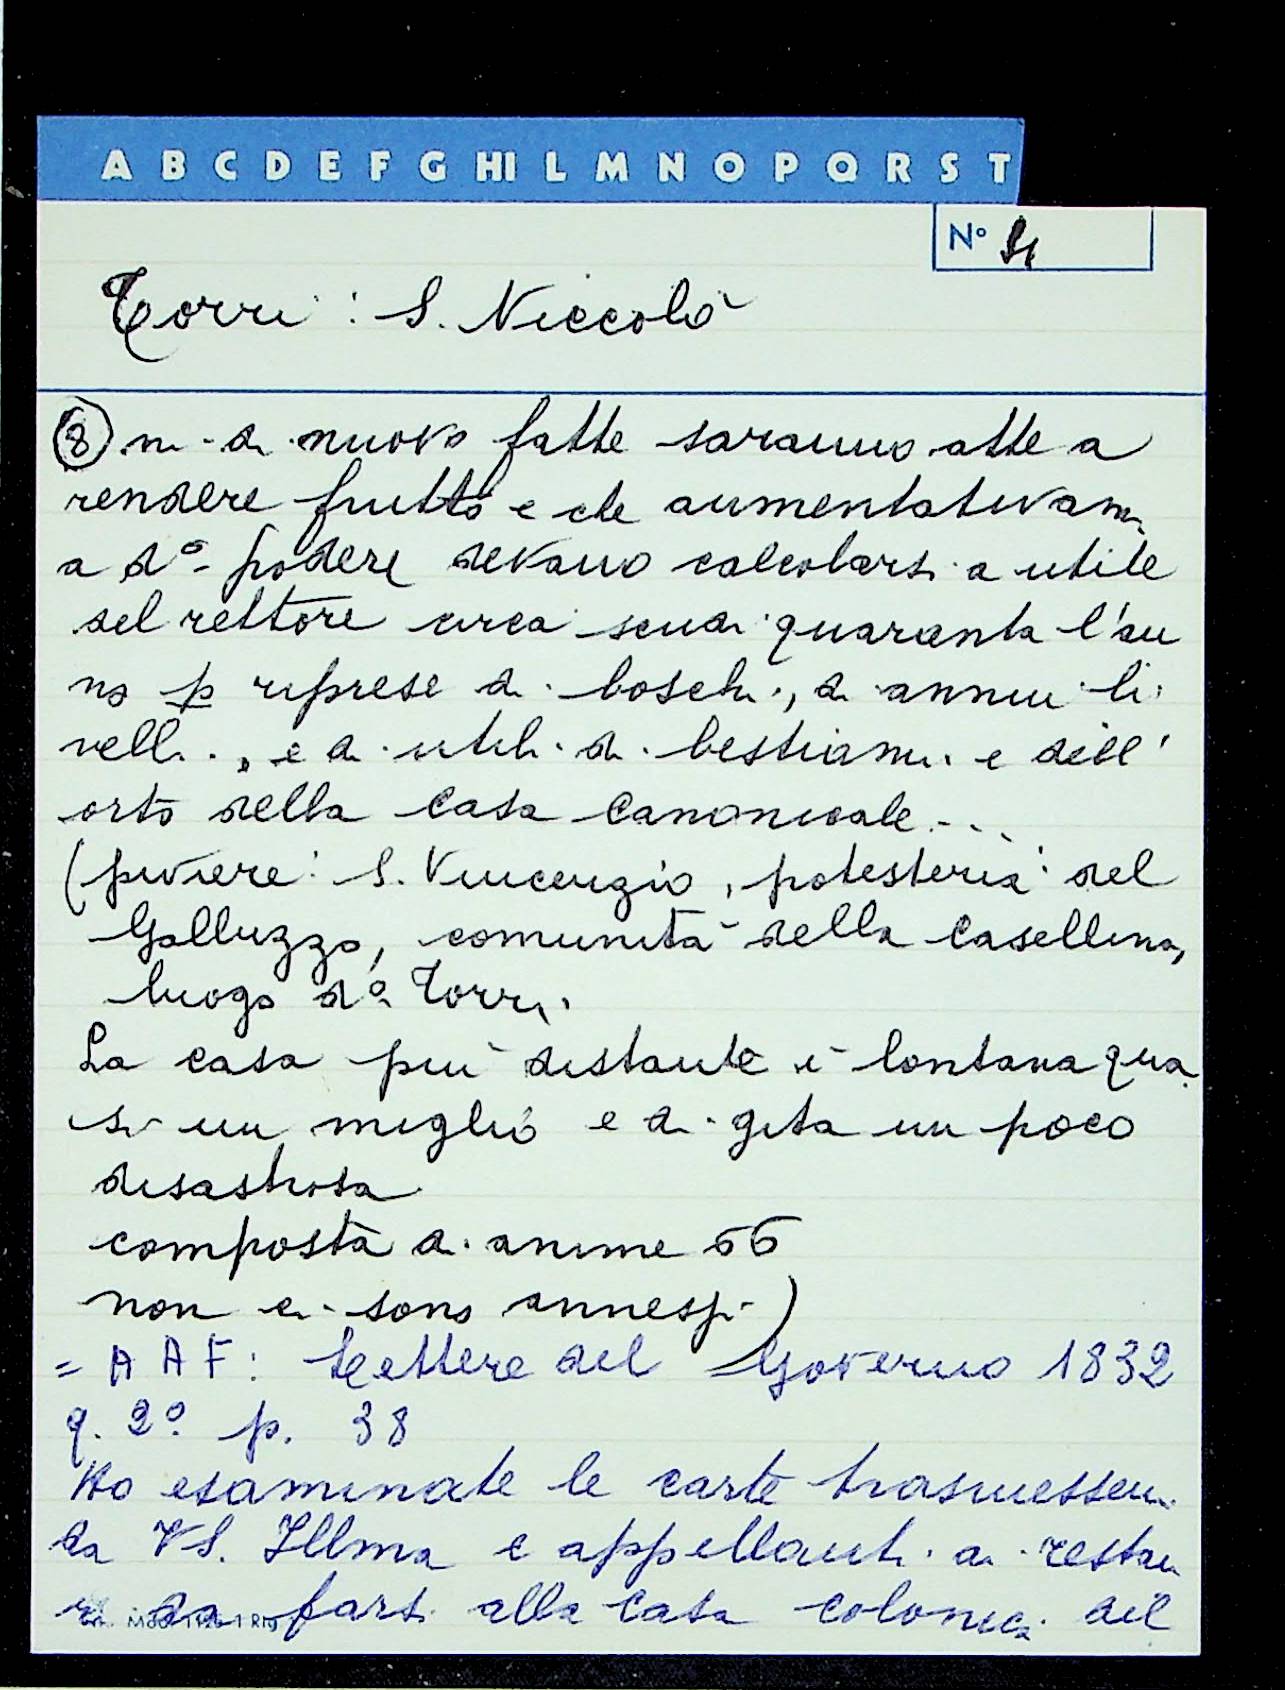 A B C D E F G HI L M N O P Q R S T
N°
Torri: S. Niccolò
(8) ni di nuovo fatte saranno atte a
rendere frutto e che aumentativam.
a d.° podere devano calcolarsi a utile
del rettore circa scudi quaranta l'an
no p riprese di boschi, di annui li
velli, e di utili di bestiami e dell'
orto della casa canonicale...
(piviere: S. Vincenzio, potesteria: del
Galluzzo, comunità della Casellina,
luogo d.° Torri.
La casa più distante è lontana qua
si un miglio e di gita un poco
disastrosa
composta di anime 66
non ci sono annessi)
= A A F: Lettere del Governo 1832
q. 2° p. 38
Ho esaminate le carte trasmessemi
da VS. Illma e appellanti ai restau
ri da farsi alla casa colonica del